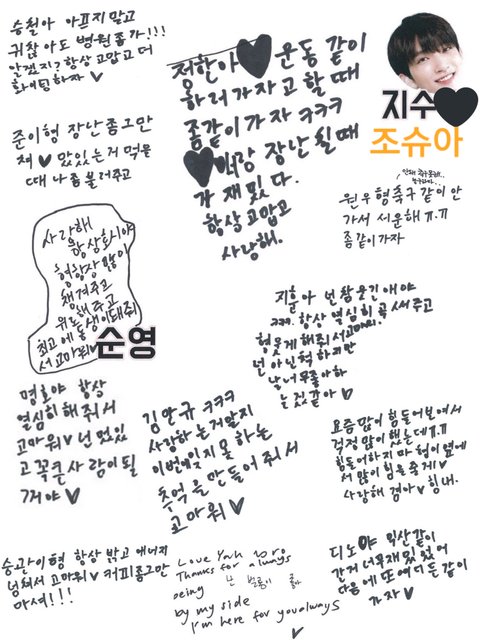 승철아 아프지 말고
귀찮아도 병원좀가!!!
알겠지? 항상 고맙고 더
화이팅하자♡
정한아♥ 운동 같이
하러가자고 할때
좀같이가자 ㅋㅋㅋ
♥너랑 장난칠때
가 재밌다.
항상 고맙고
사랑해.
지수♥
조슈아
준이형 장난좀그만
쳐♥ 맛있는거 먹을
때 나좀 불러주고
원우형축구같이안
가서 서운해ㅠ.ㅠ
좀같이가자
사랑해
항상호시야
형항상많이
챙겨주고
위로해주고
최고에동생이돼줘
서고마워♥
순영
지훈아 넌참웃긴애야
ㅋㅋㅋ. 항상 열심히 곡 써주고
형믿게해줘서고마워.
넌아닌척하지만
날너무좋아하
는것같아♡
명호야 항상
열심히해줘서
고마워♥넌멋있
고꼭큰사람이될
꺼야♡
김민규 ㅋㅋㅋ
사랑하는거알지
이번에잊지못하는
추억을만들어줘서
고마워♡
요즘많이힘들어보여서
걱정많이했는데ㅠㅠ
힘들어하지마형이옆에
서많이힘을줄게♥
사랑해 겸아♥힘내.
승관이형 항상 밝고 에너지
넘쳐서 고마워♥ 커피좀그만
마셔!!!
Love Yoah bro
Thanks for always
being
by my side
I'm here for you always
♡
디노야 익산같이
간거너무재밌었어
다음에또어디든같이
가자♡